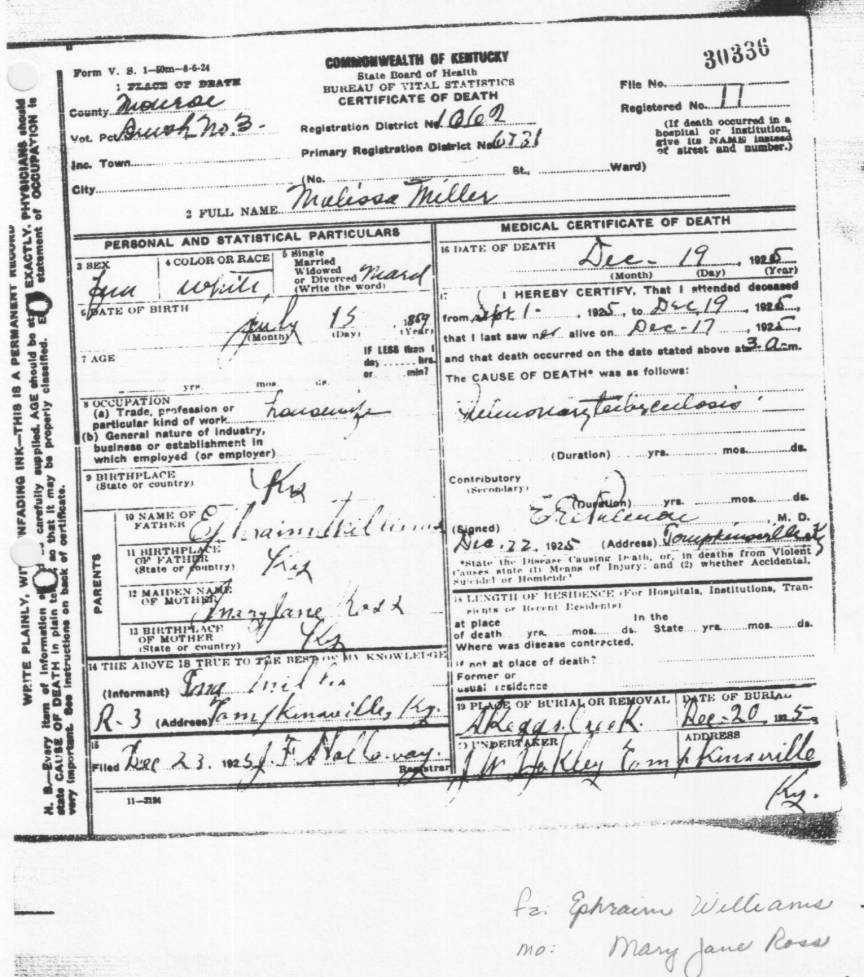 30336
Form V. S. 1-50m-8-6-24
COMMONWEALTH OF KENTUCKY
State Board of Health
BUREAU OF VITAL STATISTICS
CERTIFICATE OF DEATH
1 PLACE OF DEATH
County Monroe
Vot. Pct. Brush No. 3
Inc. Town
City
Registration District No. 1062
Primary Registration District No. 6731
(No. St., Ward)
File No.
Registered No. 11
(If death occurred in a
hospital or institution,
give its NAME instead
of street and number.)
2 FULL NAME Malissa Miller
PERSONAL AND STATISTICAL PARTICULARS
3 SEX
Fem
4 COLOR OR RACE
White
5 Single
Married
Widowed
or Divorced Mard
(Write the word)
6 DATE OF BIRTH
July 15, 1869
(Month) (Day) (Year)
7 AGE
IF LESS than 1
day hrs.
or min?
yrs. mos. ds.
8 OCCUPATION
(a) Trade, profession or
particular kind of work housewife
(b) General nature of industry,
business or establishment in
which employed (or employer)
9 BIRTHPLACE
(State or country) Ky
PARENTS
10 NAME OF
FATHER Ephraim Williams
11 BIRTHPLACE
OF FATHER
(State or country) Ky
12 MAIDEN NAME
OF MOTHER Mary Jane Ross
13 BIRTHPLACE
OF MOTHER
(State or country) Ky
14 THE ABOVE IS TRUE TO THE BEST OF MY KNOWLEDGE
(Informant)
R-3 (Address) Tompkinsville, Ky.
15
Filed Dec 23, 1925 J. F. Holloway
Registrar
11-3184
MEDICAL CERTIFICATE OF DEATH
16 DATE OF DEATH
Dec - 19, 1925
(Month) (Day) (Year)
17 I HEREBY CERTIFY, That I attended deceased
from Sept 1-, 1925, to Dec 19, 1925,
that I last saw her alive on Dec-17, 1925,
and that death occurred on the date stated above at 3 a.m.
The CAUSE OF DEATH* was as follows:
Pulmonary tuberculosis
(Duration) yrs. mos. ds.
Contributory
(Secondary)
(Duration) yrs. mos. ds.
(Signed) M. D.
Dec. 22, 1925 (Address) Tompkinsville Ky
*State the Disease Causing Death, or, in deaths from Violent
Causes state (1) Means of Injury; and (2) whether Accidental,
Suicidal or Homicidal
18 LENGTH OF RESIDENCE (For Hospitals, Institutions, Tran-
sients or Recent Residents)
at place In the
of death yrs. mos. ds. State yrs. mos. ds.
Where was disease contracted,
if not at place of death?
Former or
usual residence
19 PLACE OF BURIAL OR REMOVAL
Skeggs Creek
DATE OF BURIAL
Dec-20, 1925
20 UNDERTAKER
J W Yokley
ADDRESS
Tompkinsville
Ky.
N. B.—Every item of information carefully supplied. AGE should be stated EXACTLY. PHYSICIANS should
state CAUSE OF DEATH in plain terms so that it may be properly classified. statement of OCCUPATION is
very important. See instructions on back of certificate.
WRITE PLAINLY, WITH UNFADING INK—THIS IS A PERMANENT RECORD
fa: Ephraim Williams
mo: Mary Jane Ross